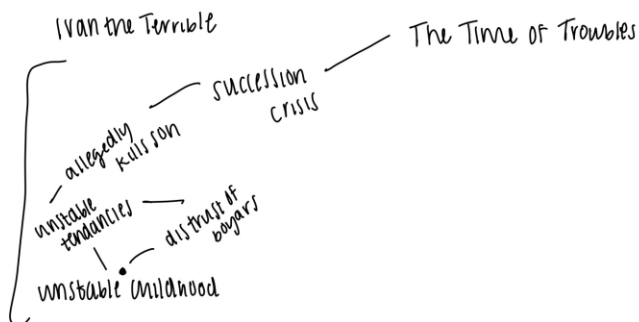 Ivan the Terrible
The Time of Troubles
succession
crisis
allegedly
kills son
unstable
tendancies
distrust of
boyars
unstable childhood